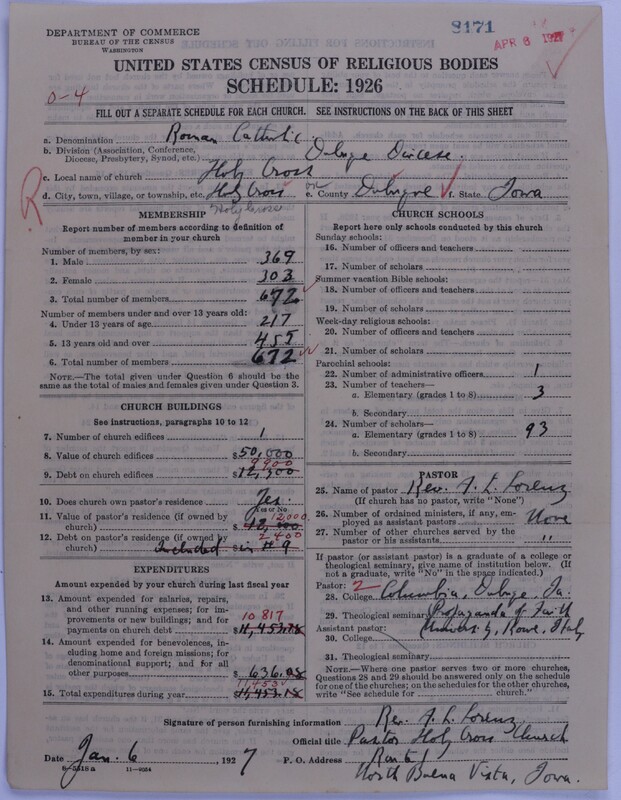 DEPARTMENT OF COMMERCE
BUREAU OF THE CENSUS
WASHINGTON
8171
APR 8 1927
UNITED STATES CENSUS OF RELIGIOUS BODIES
SCHEDULE: 1926
0-4
FILL OUT A SEPARATE SCHEDULE FOR EACH CHURCH. SEE INSTRUCTIONS ON THE BACK OF THIS SHEET
a. Denomination Roman Catholic
b. Division (Association, Conference, Diocese, Presbytery, Synod, etc.) Dubuque Diocese.
c. Local name of church Holy Cross
d. City, town, village, or township, etc. Holy Cross e. County Dubuque f. State Iowa
Holy Cross
R
MEMBERSHIP
Report number of members according to definition of
member in your church
Number of members, by sex:
1. Male 369
2. Female 303
3. Total number of members 672
Number of members under and over 13 years old:
4. Under 13 years of age 217
5. 13 years old and over 455
6. Total number of members 672
NOTE.—The total given under Question 6 should be
the same as the total of males and females given under Question 3.
CHURCH BUILDINGS
See instructions, paragraphs 10 to 12
7. Number of church edifices 1
8. Value of church edifices $50,000
9900
9. Debt on church edifices $12,300
10. Does church own pastor's residence Yes.
Yes or No
11. Value of pastor's residence (if owned by
church) $ 12,000
12. Debt on pastor's residence (if owned by 2400
church) Included $ in #9
EXPENDITURES
Amount expended by your church during last fiscal year
13. Amount expended for salaries, repairs,
and other running expenses; for im-
provements or new buildings; and for 10 817
payments on church debt $11,453.18
14. Amount expended for benevolences, in-
cluding home and foreign missions; for
denominational support; and for all
other purposes $ 636.08
11453
15. Total expenditures during year $11,453.18
CHURCH SCHOOLS
Report here only schools conducted by this church
Sunday schools:
16. Number of officers and teachers
17. Number of scholars
Summer vacation Bible schools:
18. Number of officers and teachers
19. Number of scholars
Week-day religious schools:
20. Number of officers and teachers
21. Number of scholars
Parochial schools:
22. Number of administrative officers 1
23. Number of teachers—
a. Elementary (grades 1 to 8) 3
b. Secondary
24. Number of scholars—
a. Elementary (grades 1 to 8) 93
b. Secondary
PASTOR
25. Name of pastor Rev. J. L. Lorenz
(If church has no pastor, write "None")
26. Number of ordained ministers, if any, em-
ployed as assistant pastors None
27. Number of other churches served by the
pastor or his assistants "
If pastor (or assistant pastor) is a graduate of a college or
theological seminary, give name of institution below. (If
not a graduate, write "No" in the space indicated.)
Pastor: 2
28. College Columbia, Dubuque Ia.
29. Theological seminary Propaganda of Faith
Assistant pastor: University, Rome, Italy
30. College
31. Theological seminary
NOTE.—Where one pastor serves two or more churches,
Questions 28 and 29 should be answered only on the schedule
for one of the churches; on the schedules for the other churches,
write "See schedule for church."
Signature of person furnishing information Rev. J. L. Lorenz
Official title Pastor Holy Cross Church
Date Jan. 6, 1927 P. O. Address
North Buena Vista, Iowa.
8-5518 a 11-9024